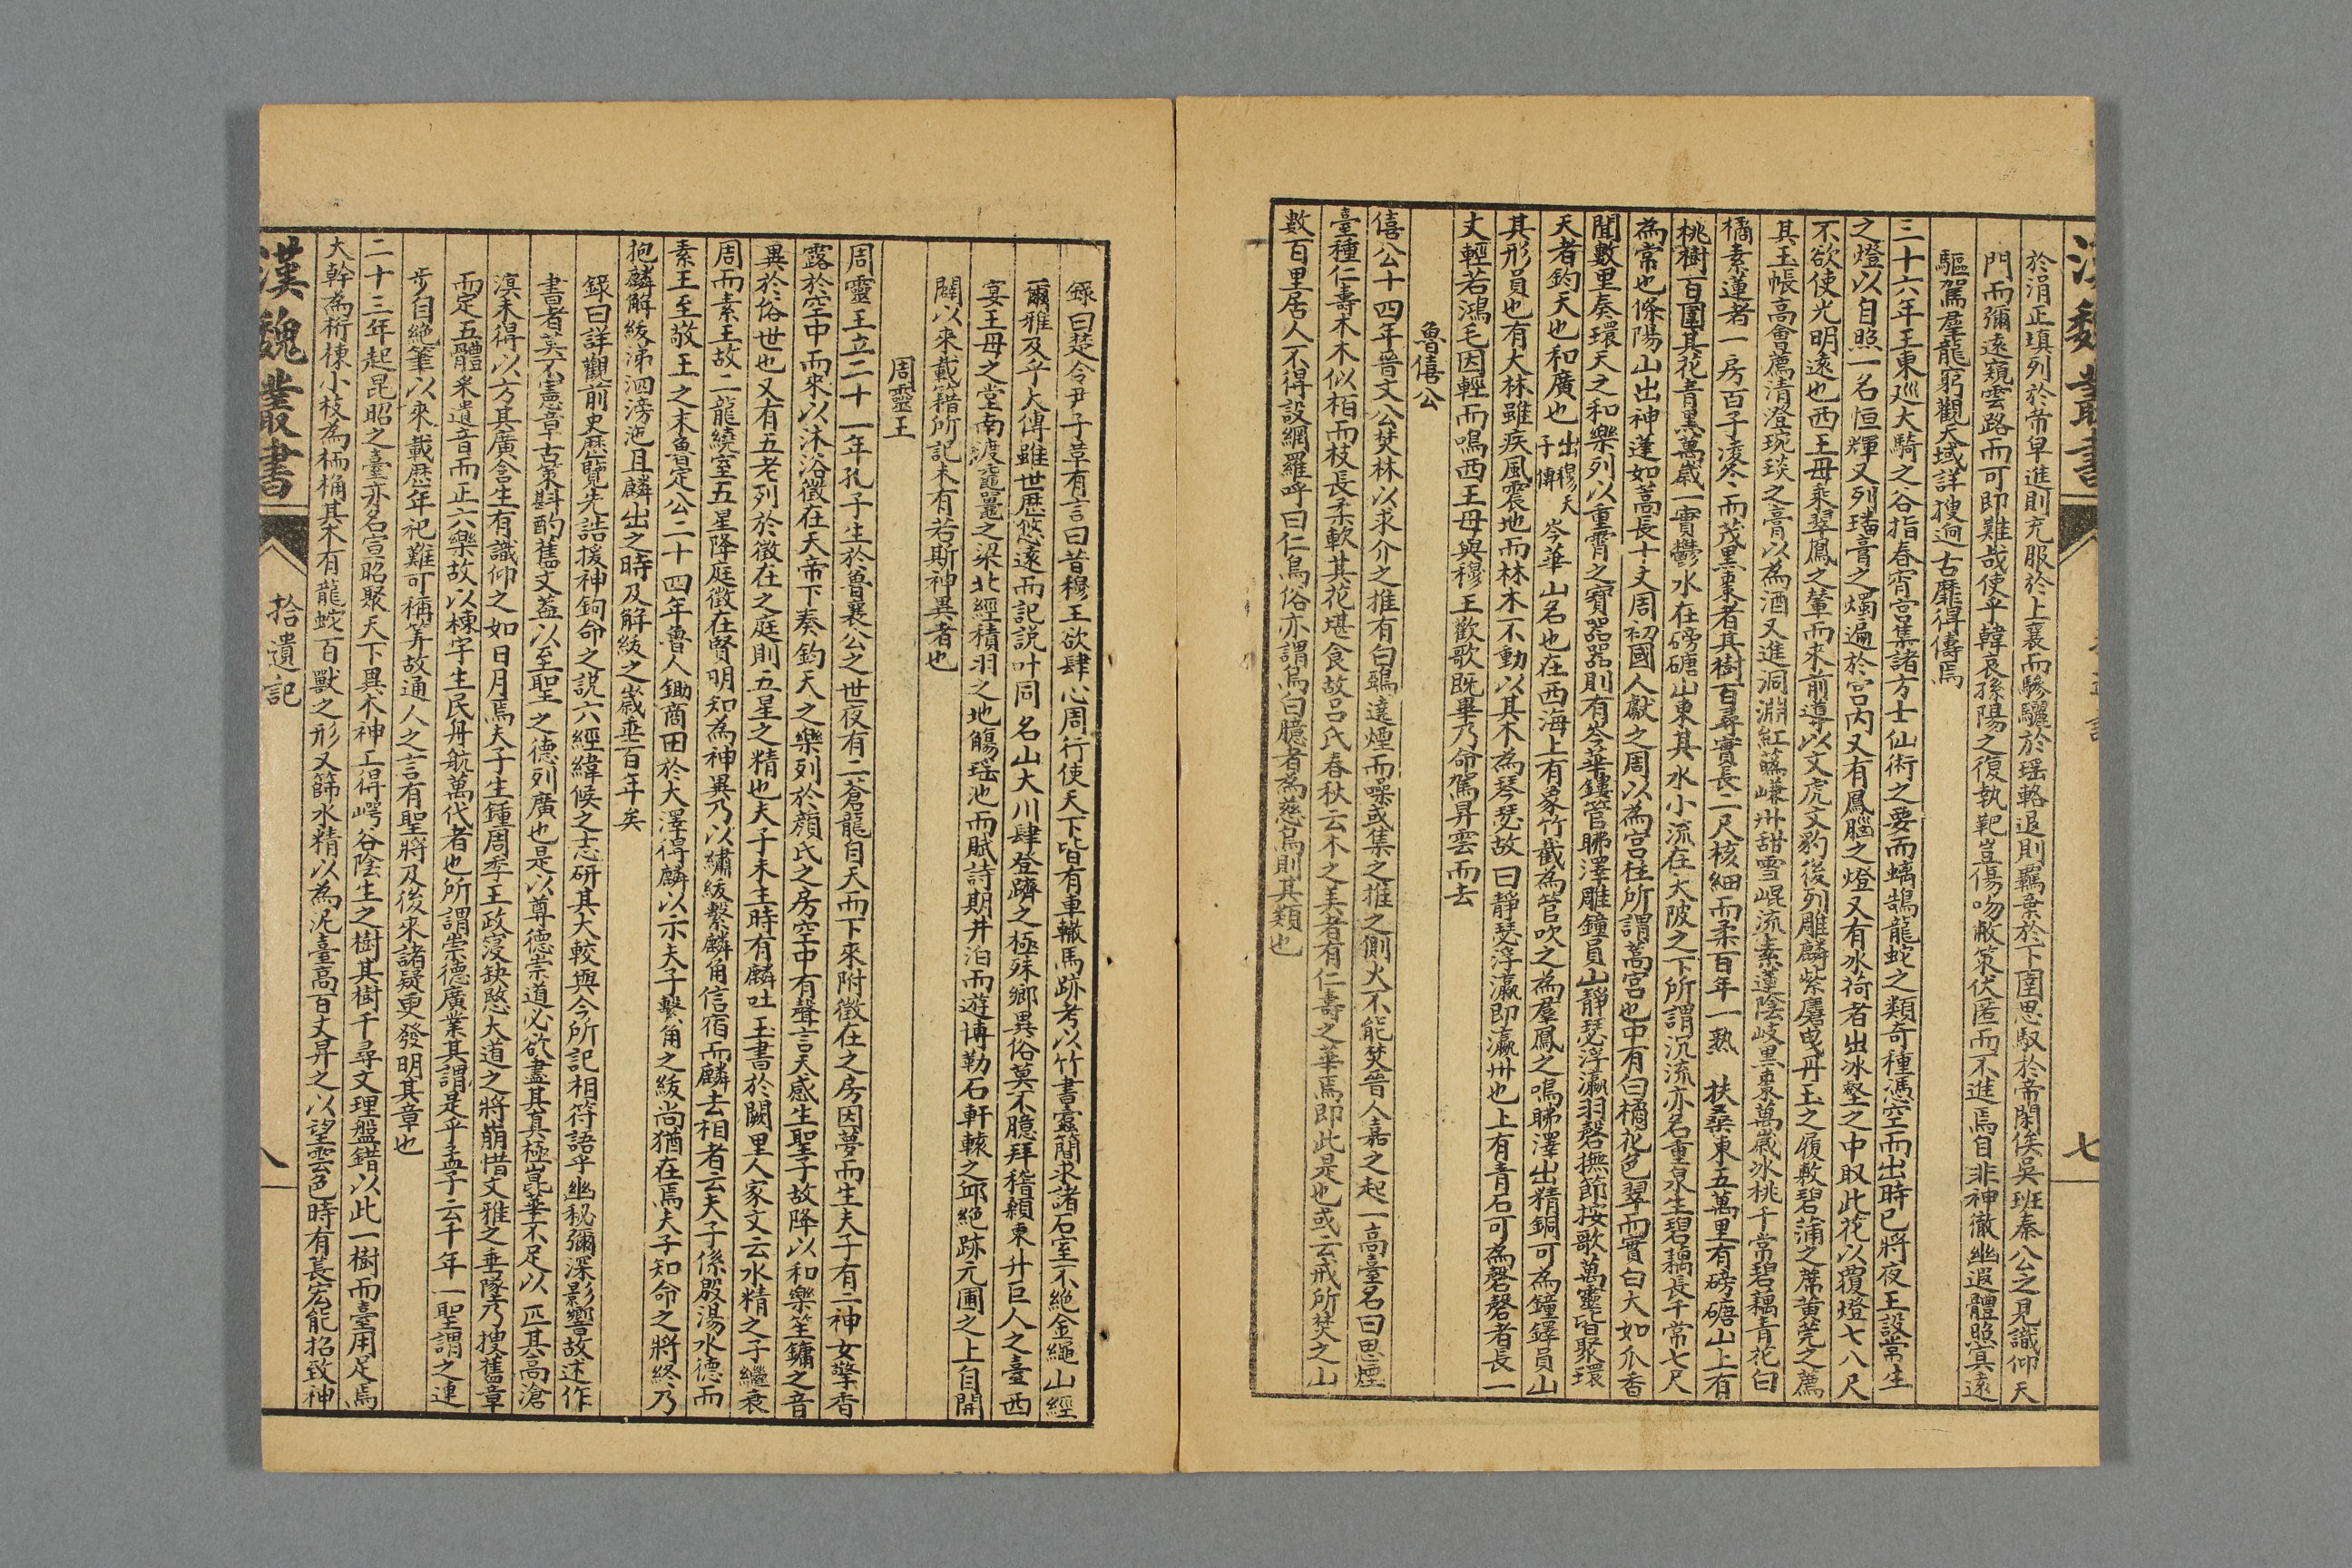 於涓正填列於帝皁進則充服於上襄而驂驪於瑶輅退則羈棄於下圉思馭於帝閑俟吳班秦公之見識仰天
門而彌遠窺雲路而可即難哉使乎韓哀孫陽之復執靶豈傷吻敝策伏匿而不進焉自非神徹幽遐體照㝠遠
驅駕群龍窮觀天域詳搜迥古靡得儔焉
三十六年王東巡大騎之谷指春宵宫集諸方士仙術之要而螭鵠龍蛇之類奇種憑空而出時已將夜王設常生
之燈以自照一名恒輝又列璠膏之燭遍於宫内又有鳳腦之燈又有冰荷者出冰壑之中取此花以覆燈七八尺
不欲使光明遠也西王母乘翠鳳之輦而來前導以文虎文豹後列雕麟紫麏曳丹玉之履敷碧蒲之蓆黄莞之薦
其玉帳高會薦清澄琬琰之膏以為酒又進洞淵紅蘤嵰州甜雪崐流素蓮陰岐黒棗萬歲冰桃千常碧藕青花白
橘素蓮者一房百子凌冬而茂黒棗者其樹百尋實長二尺核細而柔百年一熟 扶桑東五萬里有磅磄山上有
桃樹百圍其花青黒萬歲一實鬱水在磅磄山東其水小流在大陂之下所謂沉流亦名重泉生碧藕長千常七尺
為常也條陽山出神蓬如蒿長十丈周初國人獻之周以為宫柱所謂蒿宫也中有白橘花色翠而實白大如瓜香
聞數里奏環天之和樂列以重霄之寶器器則有岑華鏤管䀢澤雕鐘員山靜瑟浮瀛羽磬撫節按歌萬靈皆聚環
天者鈞天也和廣也出穆天子傳 岑華山名也在西海上有象竹截為管吹之為羣鳳之鳴䀢澤出精銅可為鐘鐸員山
其形員也有大林雖疾風震地而林木不動以其木為琴瑟故曰靜瑟浮瀛即瀛州也上有青石可為磬磬者長一
丈輕若鴻毛因輕而鳴西王母與穆王歡歌既畢乃命駕昇雲而去
魯僖公
僖公十四年晉文公焚林以求介之推有白鵶遶煙而噪或集之推之側火不能焚晉人嘉之起一高臺名曰思煙
臺種仁壽木木似栢而枝長柔軟其花堪食故吕氏春秋云木之美者有仁壽之華焉即此是也或云戒所焚之山
數百里居人不得設網羅呼曰仁鳥俗亦謂鳥白臆者為慈烏則其類也
七
錄曰楚令尹子章有言曰昔穆王欲肆心周行使天下皆有車轍馬跡考以竹書蠹簡求諸石室不絶金繩山經
爾雅及乎大傳雖世歴悠遠而記説叶同名山大川肆登躋之極殊鄉異俗莫不臆拜稽顙東升巨人之臺西
宴王母之堂南渡黿鼉之梁北經積羽之地觴瑶池而賦詩期井泊而遊博勒石軒轅之邱絶跡元圃之上自開
闢以來載籍所記未有若斯神異者也
周靈王
周靈王立二十一年孔子生於魯襄公之世夜有二蒼龍自天而下來附徵在之房因夢而生夫子有二神女擎香
露於空中而來以沐浴徵在天帝下奏鈞天之樂列於顔氏之房空中有聲言天感生聖子故降以和樂笙鏞之音
異於俗世也又有五老列於徵在之庭則五星之精也夫子未生時有麟吐玉書於闕里人家文云水精之子繼衰
周而素王故二龍繞室五星降庭徵在賢明知為神異乃以繡紱繫麟角信宿而麟去相者云夫子係殷湯水德而
素王至敬王之末魯定公二十四年魯人鋤商田於大澤得麟以示夫子繫角之紱尚猶在焉夫子知命之將終乃
抱麟解紱涕泗滂沱且麟出之時及解紱之歲垂百年矣
錄曰詳觀前史歴覽先誥援神鉤命之説六經緯候之志研其大較與今所記相符語乎幽秘彌深影響故述作
書者美不憲章古策斟酌舊文葢以至聖之德列廣也是以尊德崇道必欲盡其真極崑華不足以匹其高滄
溟未得以方其廣含生有識仰之如日月焉夫子生鍾周季王政寖缺愍大道之將崩惜文雅之垂隊乃搜舊章
而定五禮采遺音而正六樂故以棟宇生民舟航萬代者也所謂崇德廣業其謂是乎孟子云千年一聖謂之連
步自絶筆以來載歴年祀難可稱筭故通人之言有聖將及後來諸疑更發明其章也
二十三年起昆昭之臺亦名宣昭聚天下異木神工得崿谷陰生之樹其樹千尋文理盤錯以此一樹而臺用足焉
大幹為桁棟小枝為栭桷其木有龍蛇百獸之形又篩水精以為泥臺高百丈昇之以望雲色時有萇宏能招致神
漢魏叢書
拾遺記
八